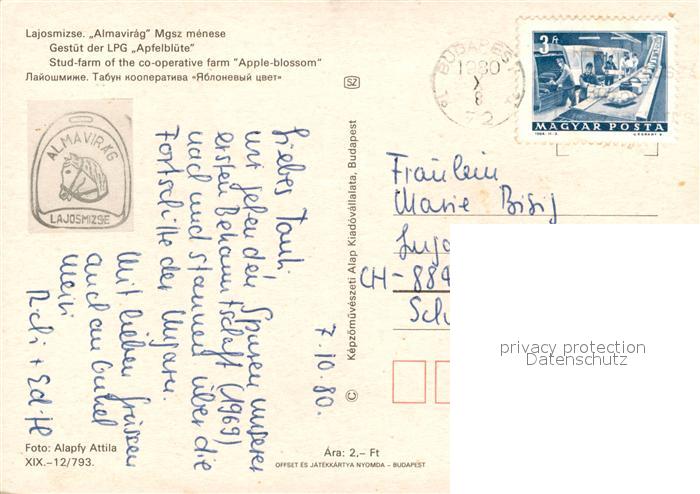 Lajosmizse. „Almavirág" Mgsz ménese
Gestüt der LPG „Apfelblüte"
Stud-farm of the co-operative farm "Apple-blossom"
Лайошмиже. Табун кооператива «Яблоневый цвет»
ALMAVIRÁG
LAJOSMIZSE
SZ
BUDAPEST
1980 X 8
72
3 ft
MAGYAR POSTA
7.10.80.
Liebes Tanti
wir gehen den Spuren unserer
ersten Bekanntschaft (1969)
nach und staunen über die
Fortschitte der Ungarn.
Mit lieben Grüssen
auch an Onkel
Meiri
Ruedi + Edith
© Képzőművészeti Alap Kiadóvállalata, Budapest
Fräulein
Marie Bisig
CH-884
privacy protection
Datenschutz
Foto: Alapfy Attila
XIX.–12/793.
Ára: 2,– Ft
OFFSET ÉS JÁTÉKKÁRTYA NYOMDA – BUDAPEST